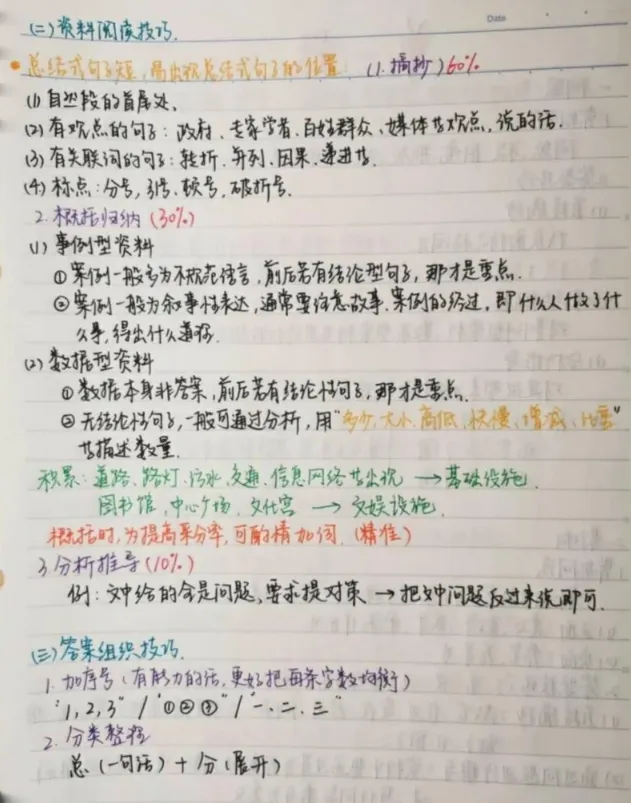 Date
(二)资料阅读技巧.
总结式句子短,易出现总结式句子的位置: (1.摘抄) 60%
(1) 自然段的首尾处.
(2) 有观点的句子:政府、专家学者、百姓群众、媒体等观点、说的话.
(3) 有关联词的句子:转折、并列、因果、递进等.
(4) 标点:分号、引号、顿号、破折号.
2.概括归纳(30%)
(1) 事例型资料
① 案例一般多为不规范语言,前后若有结论型句子,那才是重点.
② 案例一般为叙事性表达,通常要注意故事、案例的经过,即什么人做了什
么事,得出什么道理.
(2) 数据型资料
① 数据本身非答案,前后若有结论性句子,那才是重点.
② 无结论性句子,一般可通过分析,用“多少、大小、高低、快慢、增减、比重”
等描述数量.
积累:道路、路灯、污水、交通、信息网络等出现 → 基础设施.
图书馆、中心广场、文化宫 → 文娱设施.
概括时,为提高采分率,可酌情加词.(精准)
3.分析推导(10%)
例:文中给的全是问题,要求提对策 → 把文中问题反过来说即可.
(三)答案组织技巧.
1.加序号(有能力的话,更好把每条字数均衡)
“1,2,3”/“①②③”/“一.二.三”
2.分类整理
总(一句话)+分(展开)